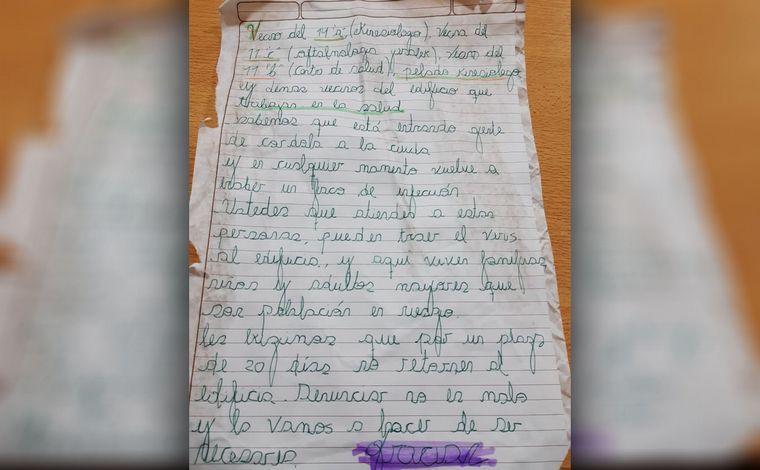 Vecino del 11 "a" (Kinesiologo), Vecina del
11 "c" (oftalmologa), Vecino del
11 "b" (Corta de salud), pelado kinesiologo
y demas vecinos del edificio que
trabajan en la salud
sabemos que está entrando gente
de cordoba a la ciudad
y en cualquier momento vuelve a
haber un foco de infección
Ustedes que atienden a estas
personas, pueden traer el virus
al edificio, y aqui viven familias,
niños y adultos mayores que
son población en riesgo.
les exigimos que por un plazo
de 20 días no retornen al
edificio. Denunciar no es malo
y lo vamos a hacer de ser
necesario. gracias